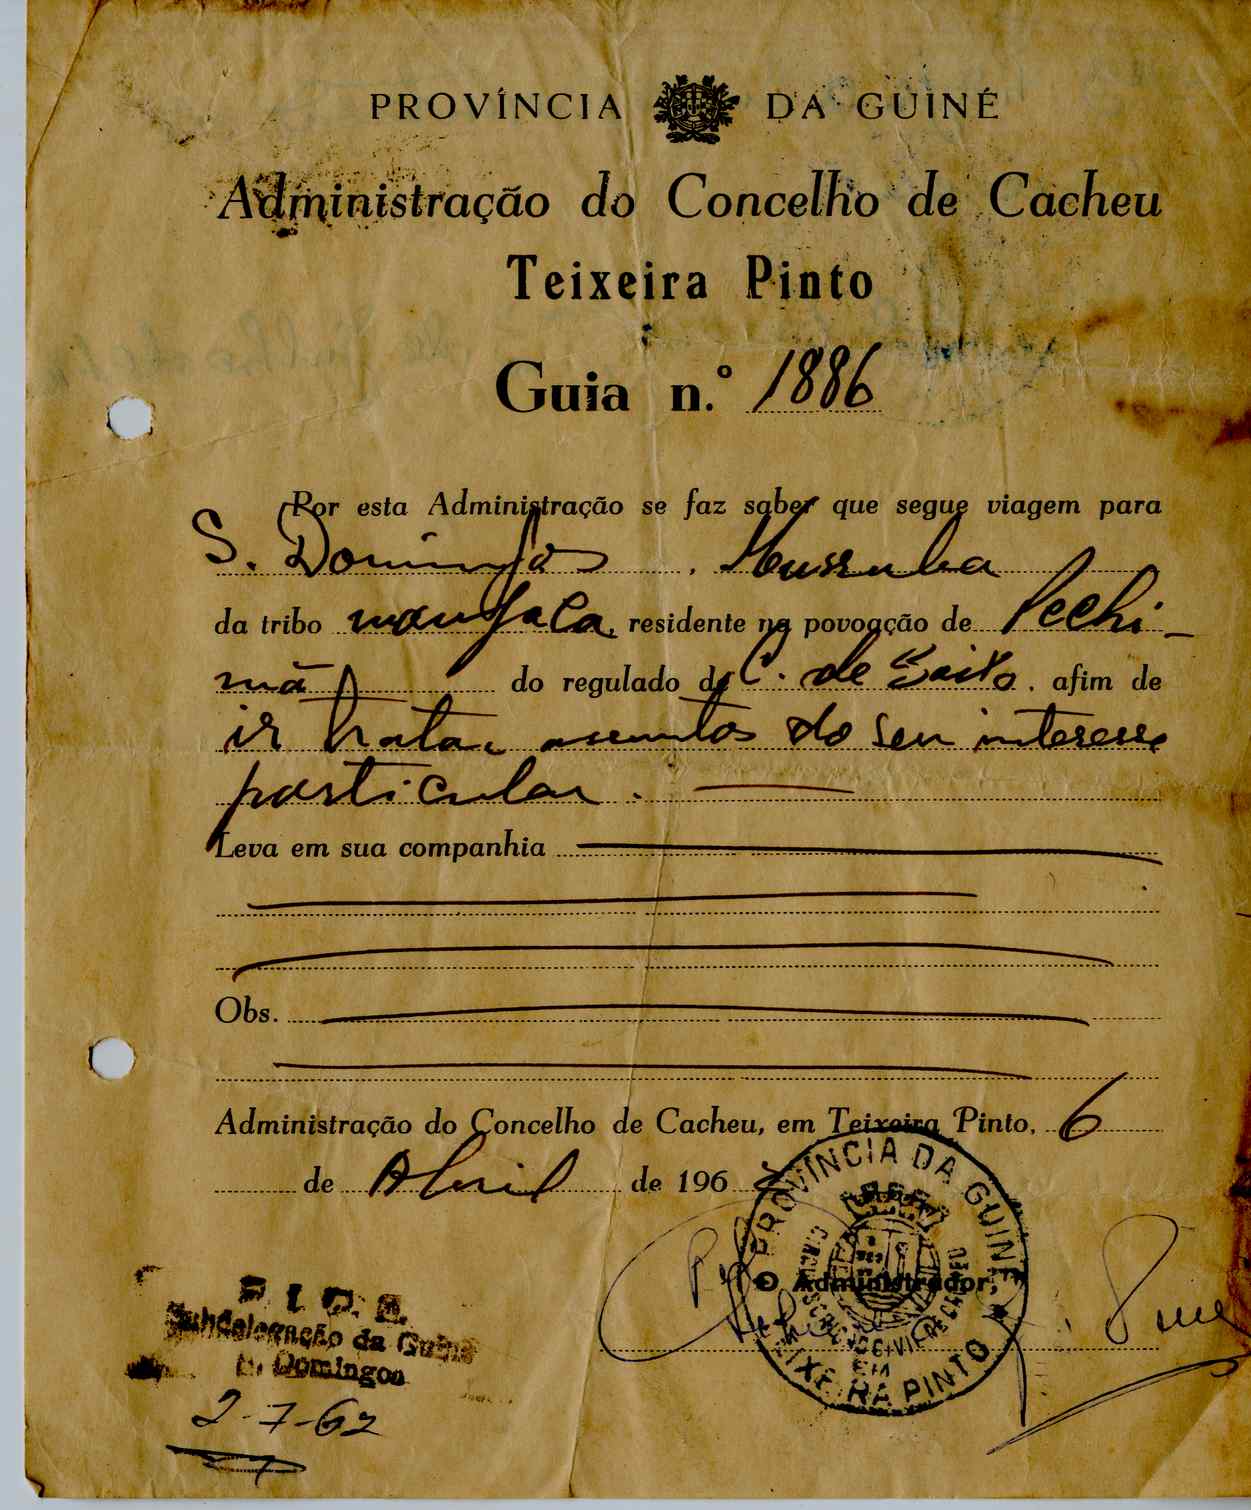 PROVÍNCIA DA GUINÉ
Administração do Concelho de Cacheu
Teixeira Pinto
Guia n.º 1886
Por esta Administração se faz saber que segue viagem para
S. Domingos,
da tribo manjaca, residente na povoação de Pechi-
mã do regulado de C. de Baixo, afim de
ir tratar assuntos do seu interesse
particular.
Leva em sua companhia
Obs.
Administração do Concelho de Cacheu, em Teixeira Pinto, 6
de Abril de 196
PROVÍNCIA DA GUINÉ
O Administrador,
TEIXEIRA PINTO
EM
P. I. D. E.
Subdelegação da Guiné
S. Domingos
2-7-62